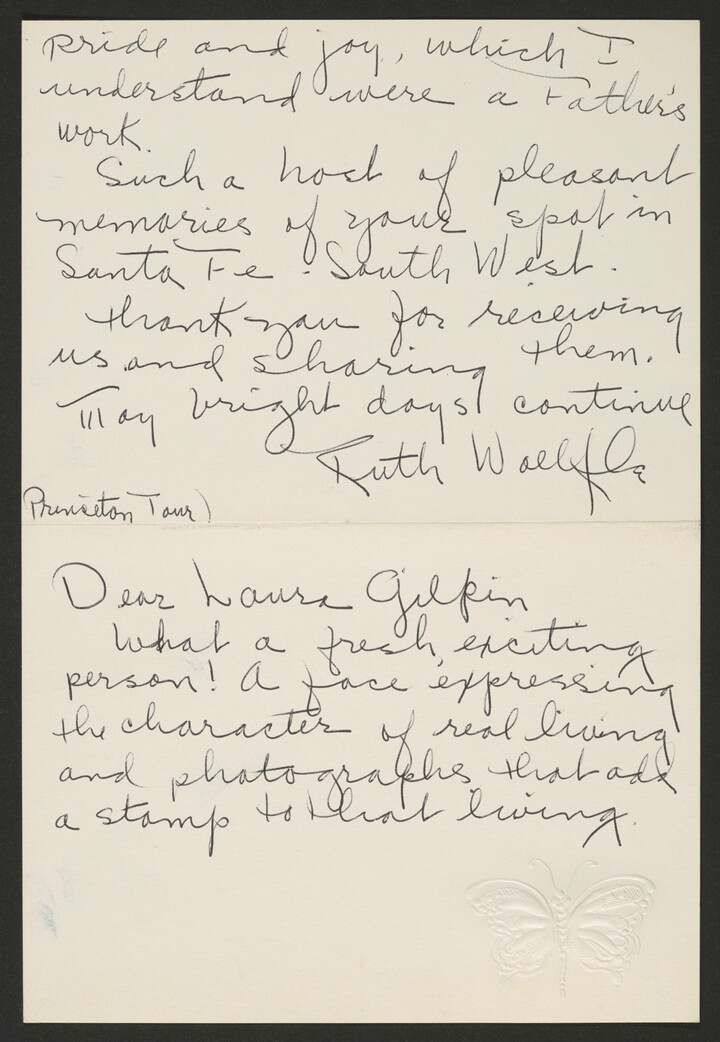 pride and joy, which I
understand were a Father's
work.
Such a host of pleasant
memories of your spot in
Santa Fe - South West.
Thank you for receiving
us and sharing them.
May bright days continue
Ruth Woelfle
Princeton Tour)
Dear Laura Gilpin
What a fresh, exciting
person! A face expressing
the character of real living
and photographs that add
a stamp to that living.